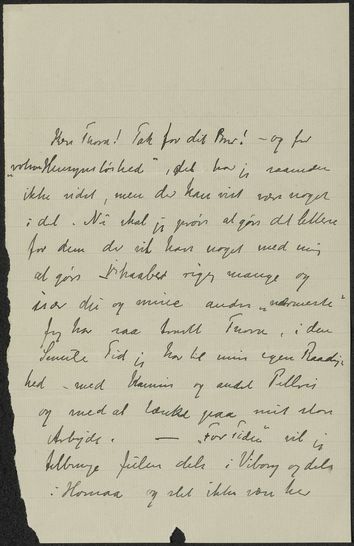 Kære Thora! Tak for dit Brev! – og for
"Hensynsløshed", det har jeg saamænd
ikke vidst, men der kan vist være noget
i det. Nu skal jeg prøve at gøre det lettere
for dem der vil have noget med mig
at gøre. I saa rigtig mange og
især du og mine andre "nærmeste"
Jeg har saa travlt Thora, i den
Smule Tid jeg har til min egen Raadig-
hed – med Kamin og andet Pilleri
og med at tænke paa mit store
Arbejde. — "For Tiden" vil jeg
tilbringe Julen dels i Viborg og dels
i Hornaa og slet ikke være her